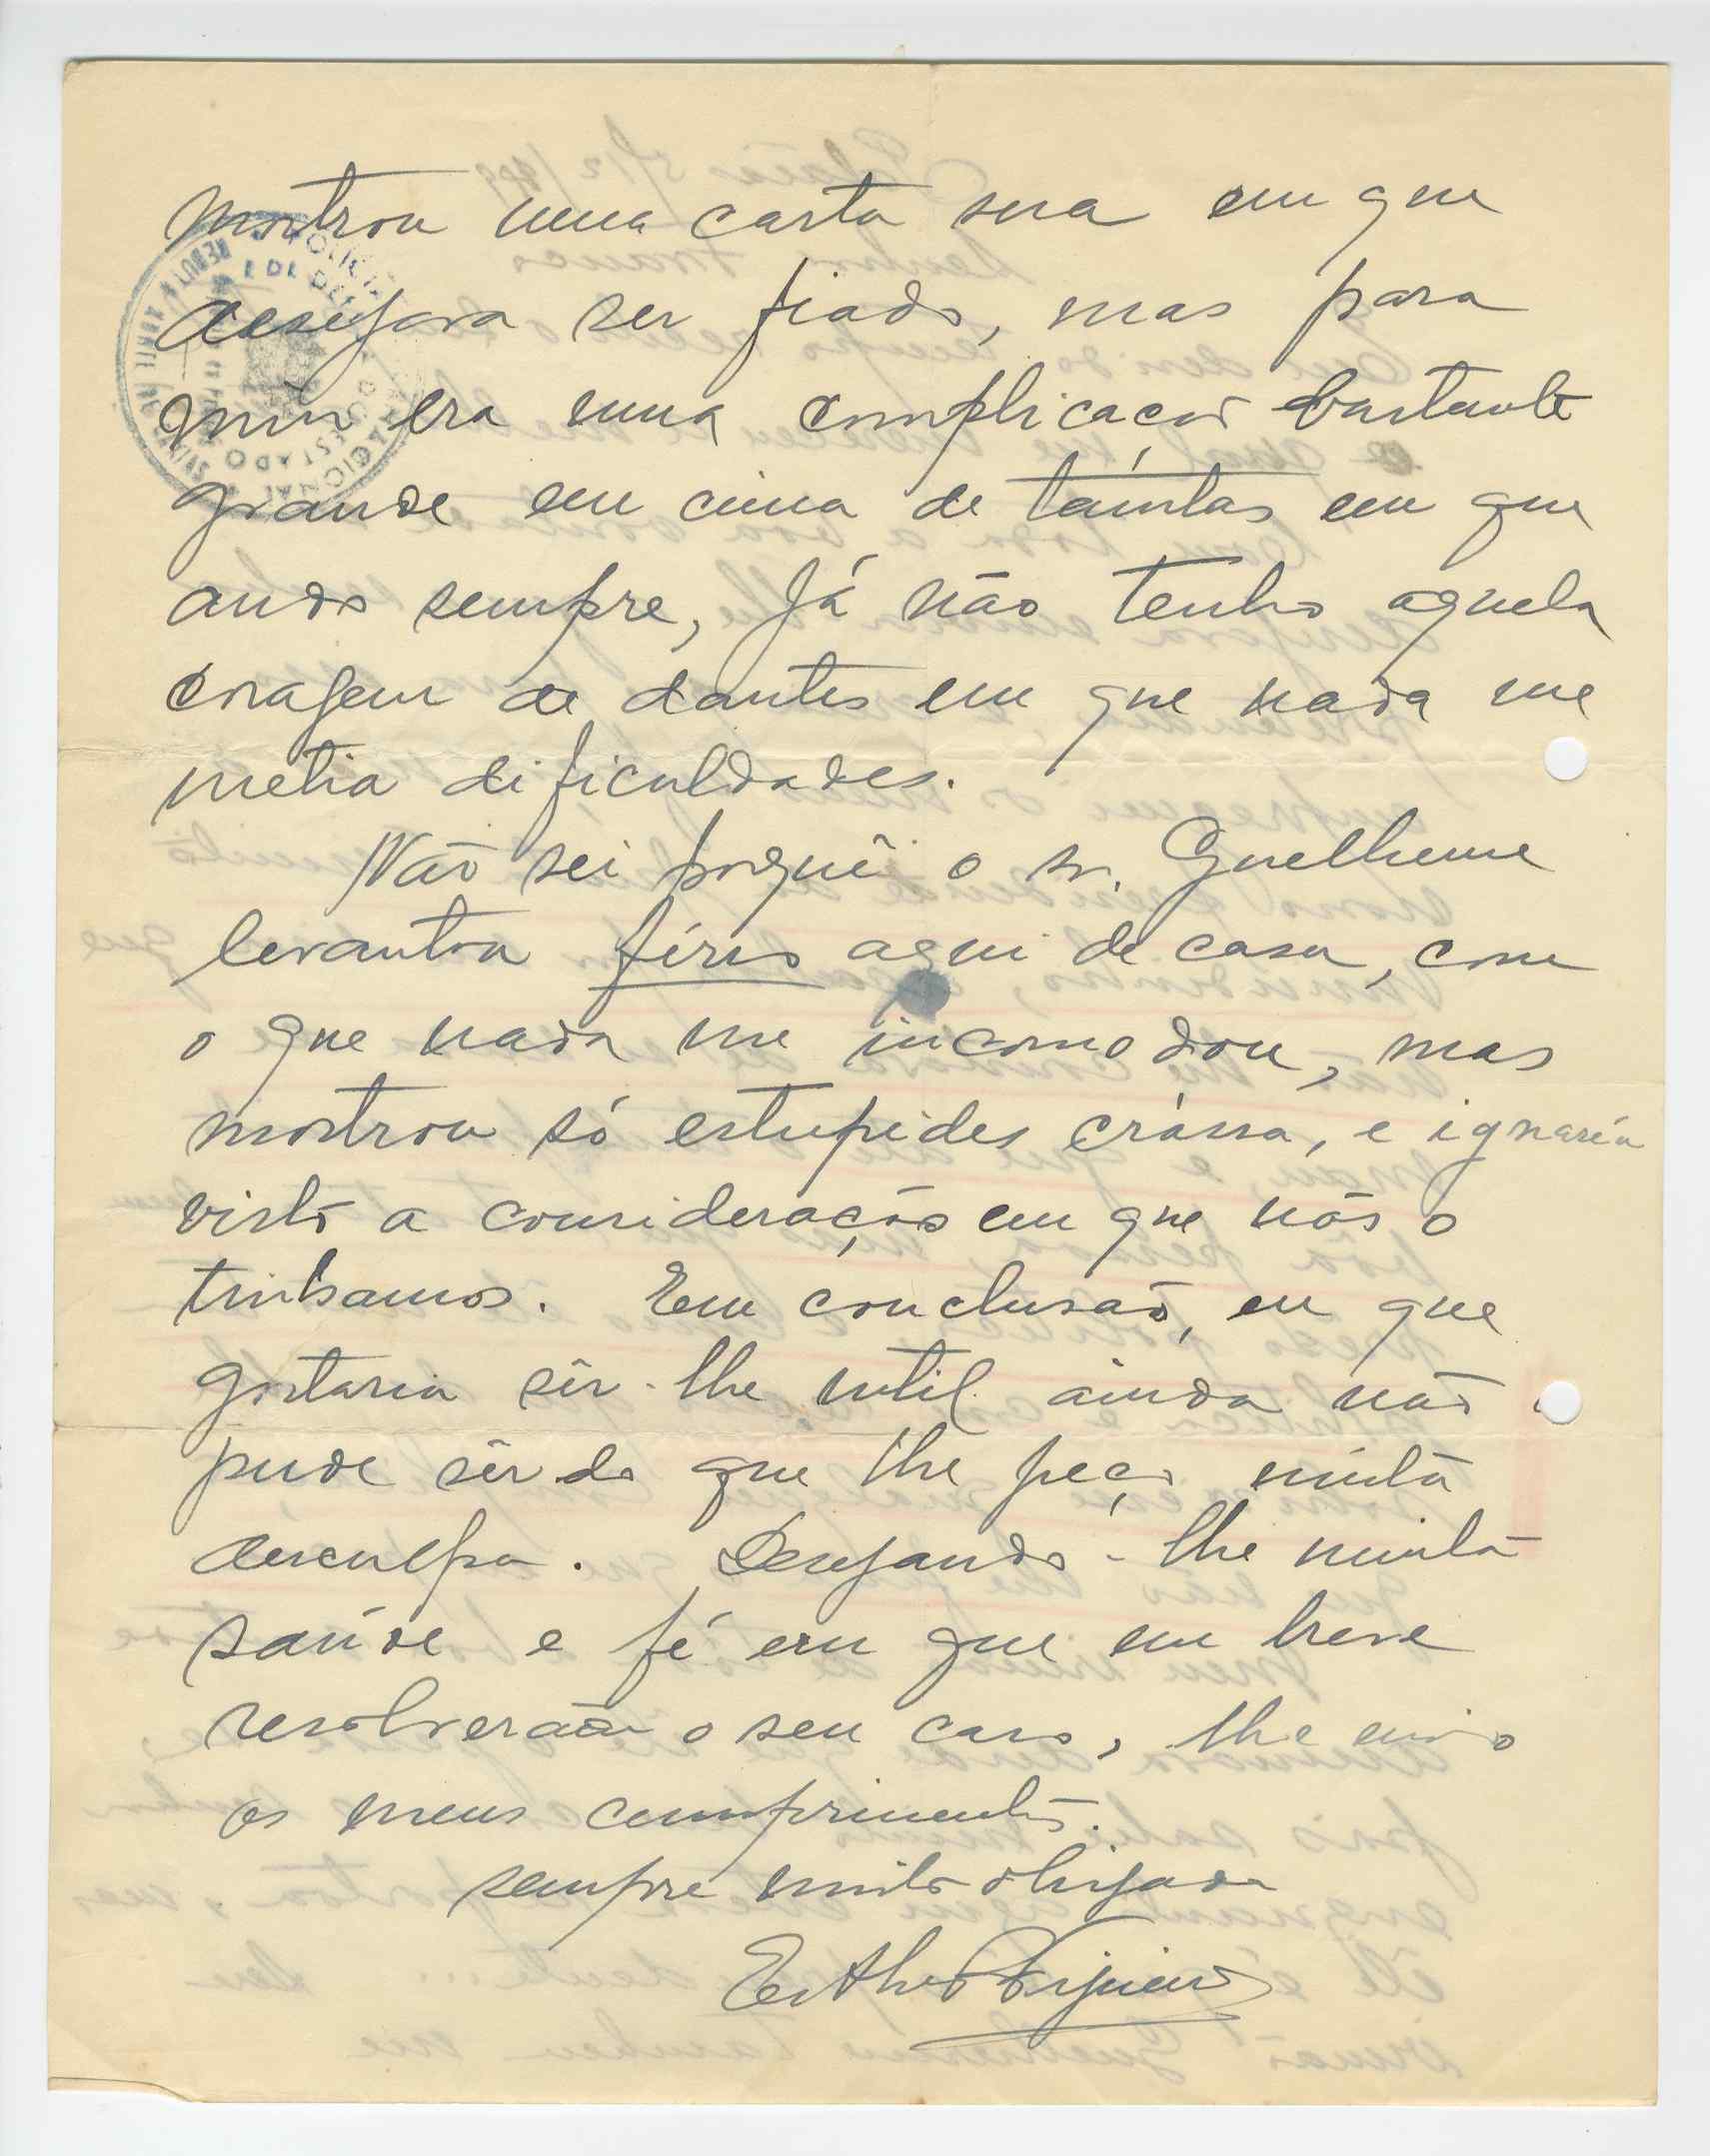 mostrou uma carta sua em que
desejava ser fiado, mas para
mim era uma complicação bastante
grande em cima de tàmtas em que
ando sempre, Já não tenho aquela
coragem de dantes em que nada me
metia dificuldades.
Não sei porquê o sr. Guelherme
levantou féros aqui de casa, com
o que nada me incomodou, mas
mostrou só estupides crássa, e ignaría
visto a consideração em que nós o
tinhamos. Em conclusão, eu que
gostaria sêr-lhe util ainda não
pude sêr do que lhe peço muita
desculpa. Desejando-lhe muita
saúde e fé em que em breve
resolverão o seu caso, lhe envio
os meus cumprimentos.
sempre muito obrigada
Esther